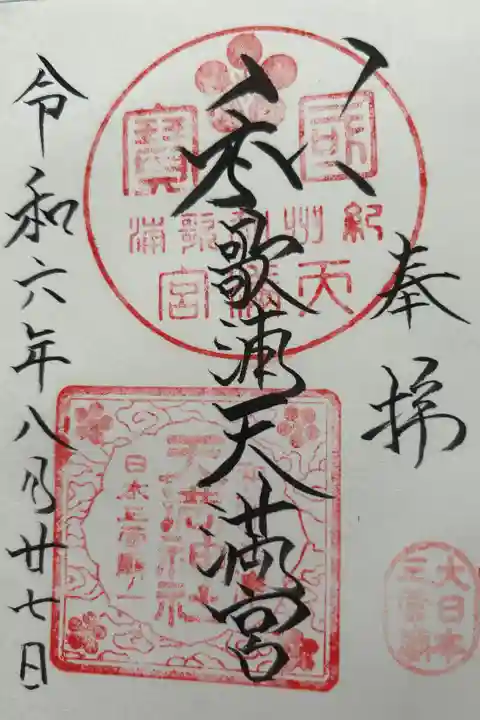 奉拝
和歌浦天満宮
令和六年八月廿七日
國寶
紀州和歌浦
天満宮
天満神社
大日本
三菅廟